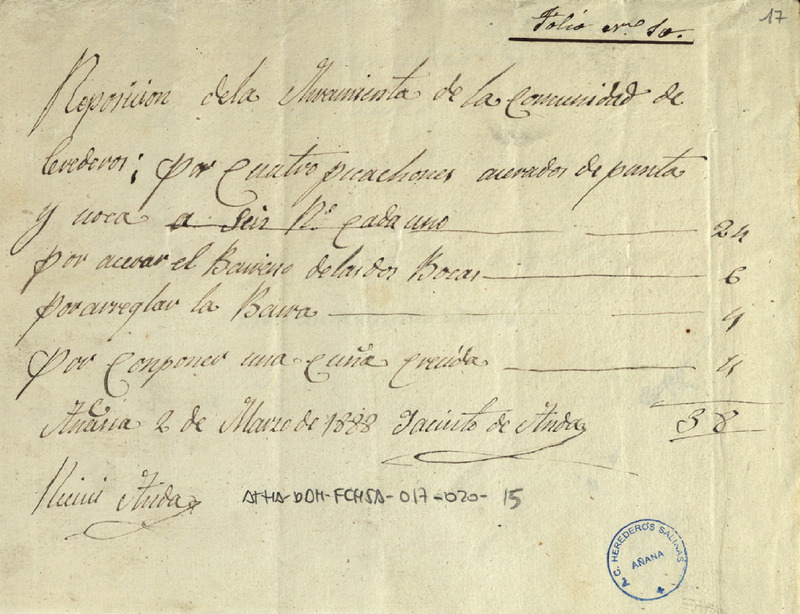 17
Folio nro. 10.
Reposicion dela Herramienta de la Comunidad de
Erederos; por Cuatro picachones acerados de punta
y voca a Seis Rs. Cada uno 24
por acerar el Barreno delas dos Bocas 6
por arreglar la Barra 4
por Conponer una Cuña Crecida 4
Añana 2 de Marzo de 1888 Jacinto de Anda 38
Anda
ATHA-DAH-FCHSA-017-020-15
A.C. HEREDEROS SALINAS
AÑANA